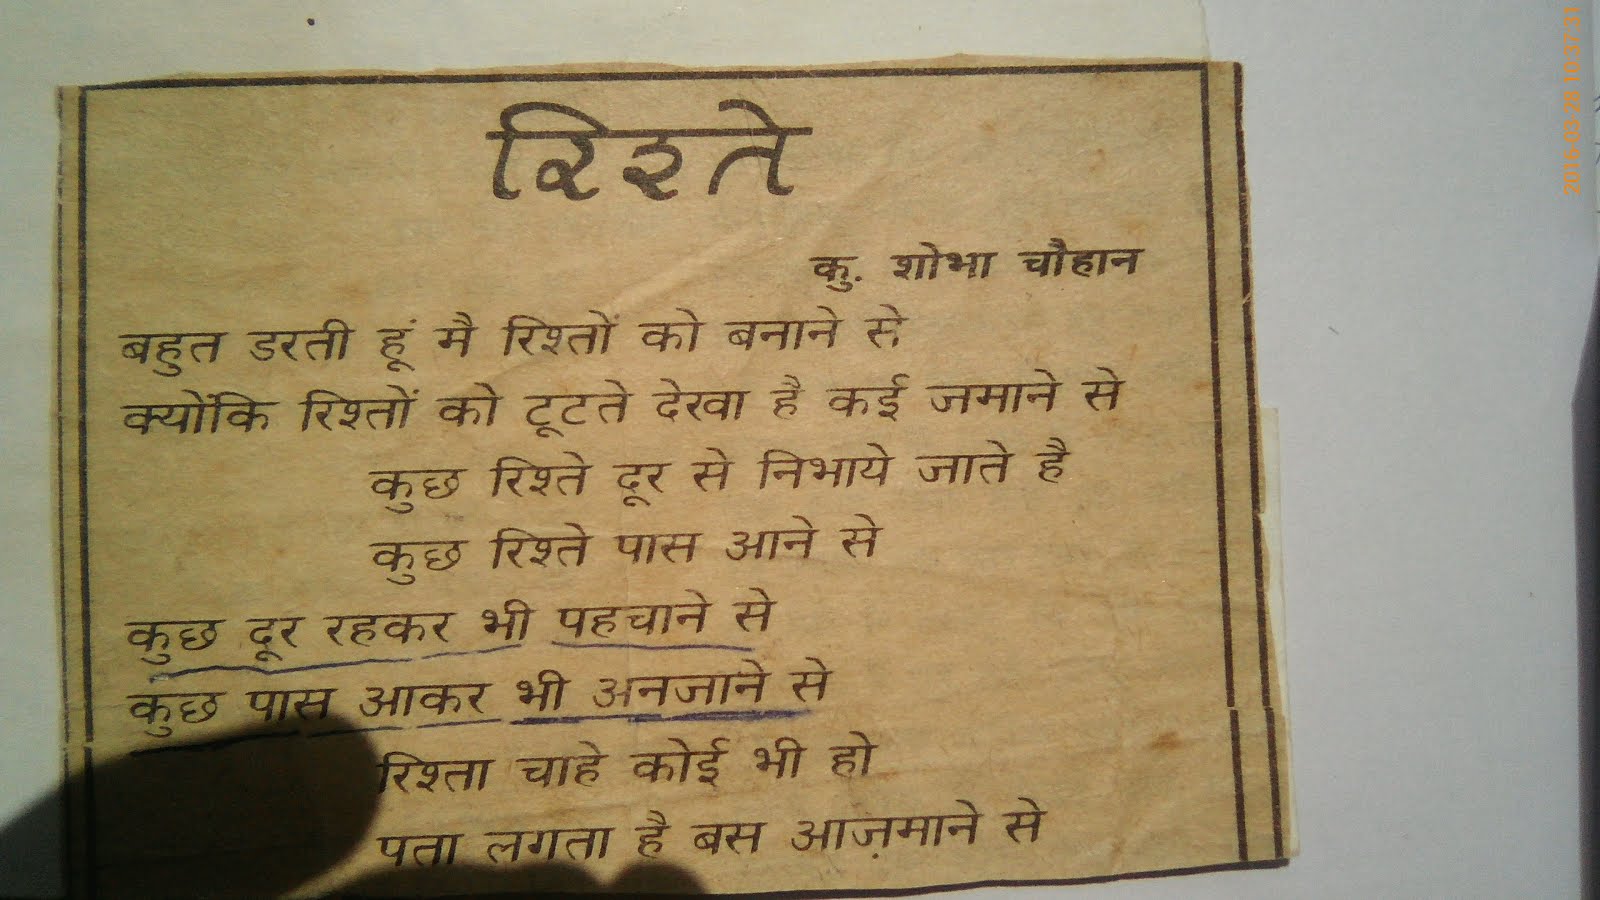 रिश्ते
कु. शोभा चौहान
बहुत डरती हूं मै रिश्तों को बनाने से
क्योंकि रिश्तों को टूटते देखा है कई जमाने से
कुछ रिश्ते दूर से निभाये जाते है
कुछ रिश्ते पास आने से
कुछ दूर रहकर भी पहचाने से
कुछ पास आकर भी अनजाने से
रिश्ता चाहे कोई भी हो
पता लगता है बस आज़माने से
2016-03-28 10:37:31